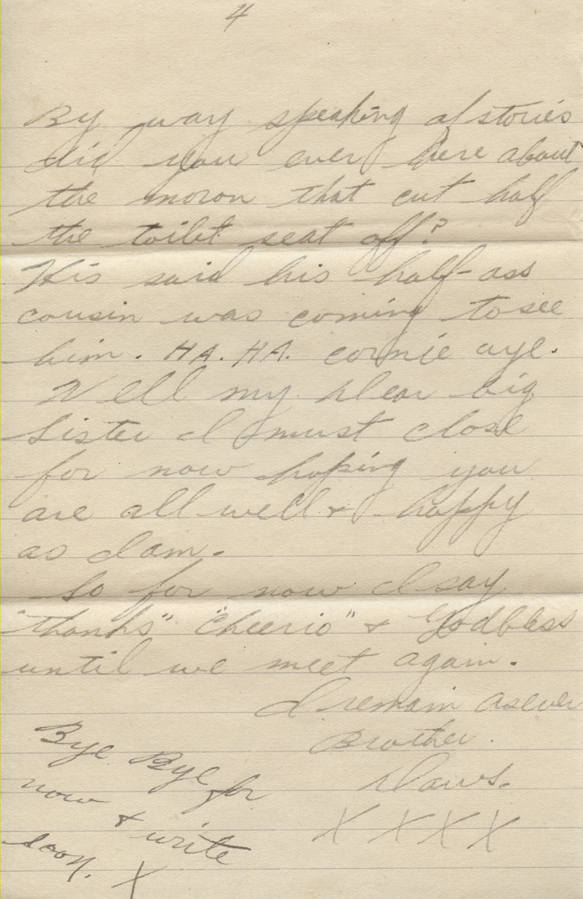 4
By way speaking of stories
did you ever here about
the moron that cut half
the toilet seat off?
His said his half-ass
cousin was coming to see
him. HA. HA. cornie aye.
Well my dear big
Sister I must close
for now hoping you
are all well & happy
as I am.
So for now I say
"thanks", "Cheerio" & Godbless
until we meet again.
I remain as ever
Brother.
Daws.
X X X X
Bye Bye for
now & write
soon. X